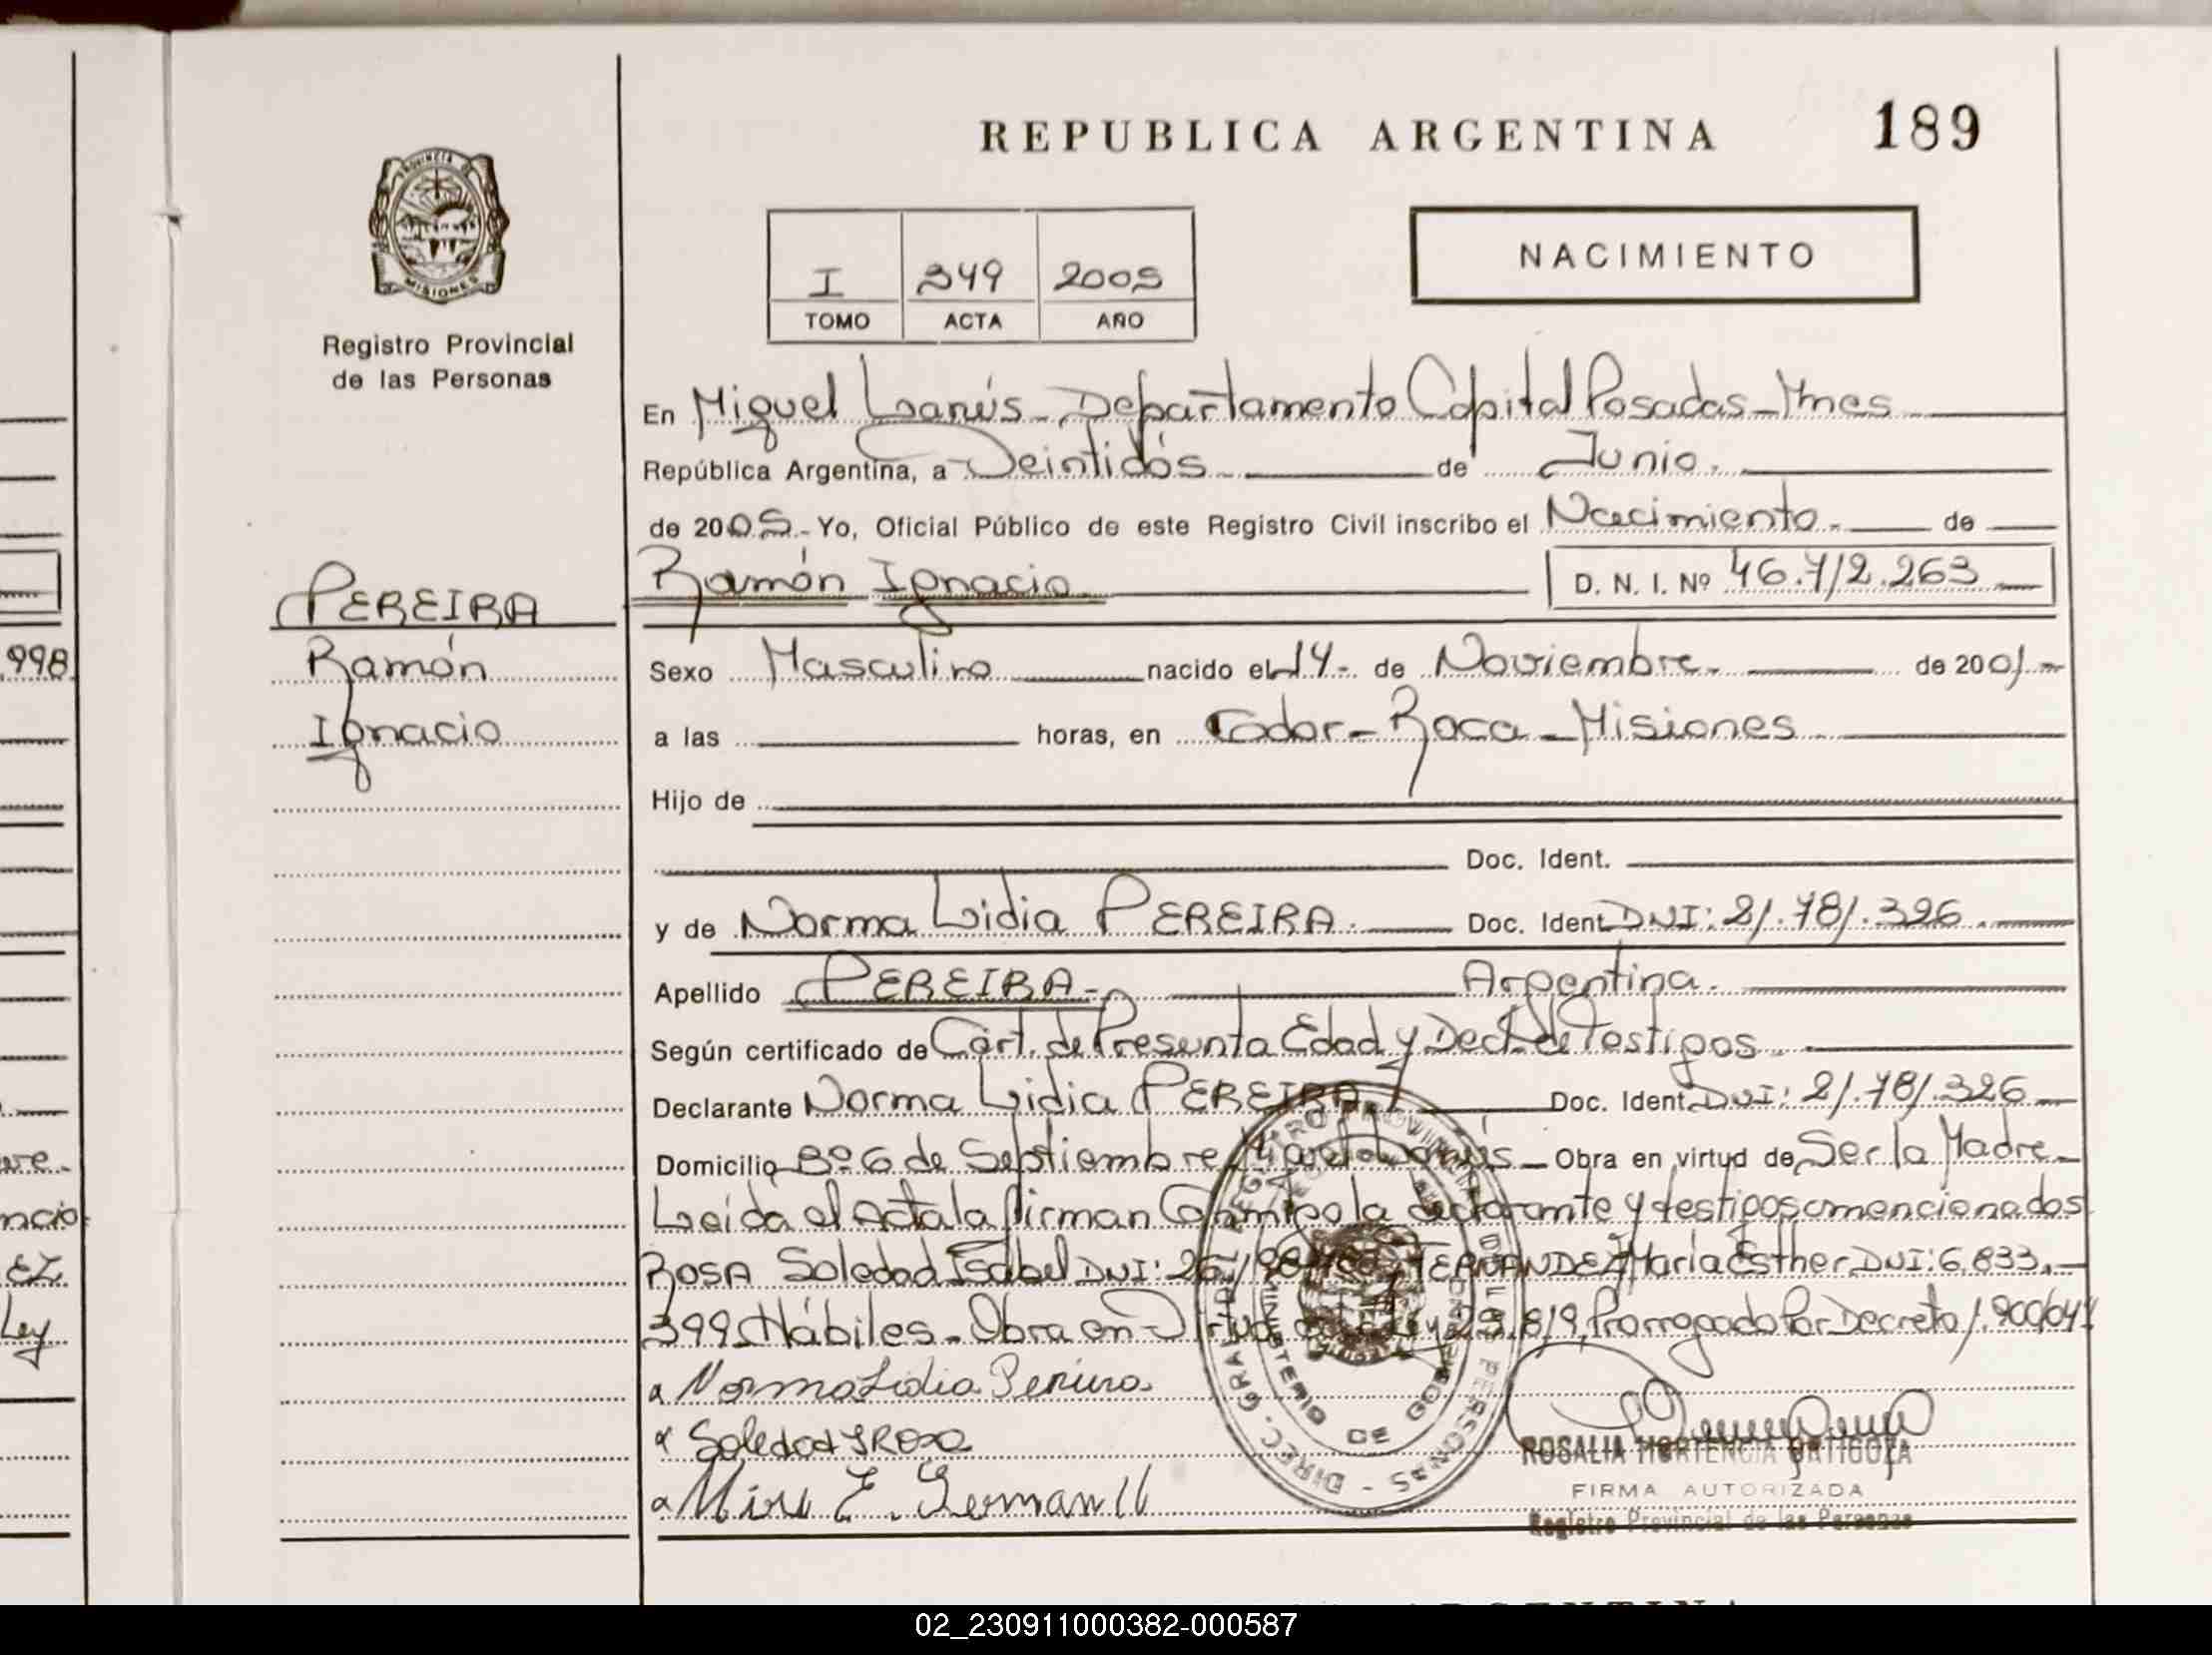 REPUBLICA ARGENTINA 189
PROVINCIA DE
MISIONES
Registro Provincial
de las Personas
NACIMIENTO
I 349 2005
TOMO ACTA AÑO
En Miguel Lanús - Departamento Capital Posadas - Mnes
República Argentina, a Veintidós de Junio.
de 2005 - Yo, Oficial Público de este Registro Civil inscribo el Nacimiento. de
PEREIRA
Ramón
Ignacio
Ramón Ignacio D. N. I. Nº 46.712.263
Sexo Masculino nacido el 14 - de Noviembre. de 2001
a las horas, en - Roca - Misiones
Hijo de
Doc. Ident.
y de Norma Lidia PEREIRA. Doc. Ident DNI: 21.781.326.
Apellido PEREIRA - Argentina.
Según certificado de Cert. de Presunta Edad y Decl. de Testigos.
Declarante Norma Lidia PEREIRA Doc. Ident DNI: 21.781.326
Domicilio Bº 6 de Septiembre Miguel Lanús - Obra en virtud de Ser la Madre
Leída el Acta la firman Conmigo la declarante y testigos mencionados
ROSA Soledad Isabel DNI: 26. FERNANDEZ María Esther DNI: 6.833.
399 Hábiles - Obra en Virtud Ley 25.819, Prorrogado Por Decreto 1.900/04
Norma Lidia Pereira
Soledad I Rosa
REGISTRO PROVINCIAL DE LAS PERSONAS - DIREC. GRAL. DEL
MINISTERIO DE GOBIERNO
ROSALIA HORTENCIA ORTIGOZA
FIRMA AUTORIZADA
Registro Provincial de las Personas
998
ncio
EZ
Ley
02_230911000382-000587